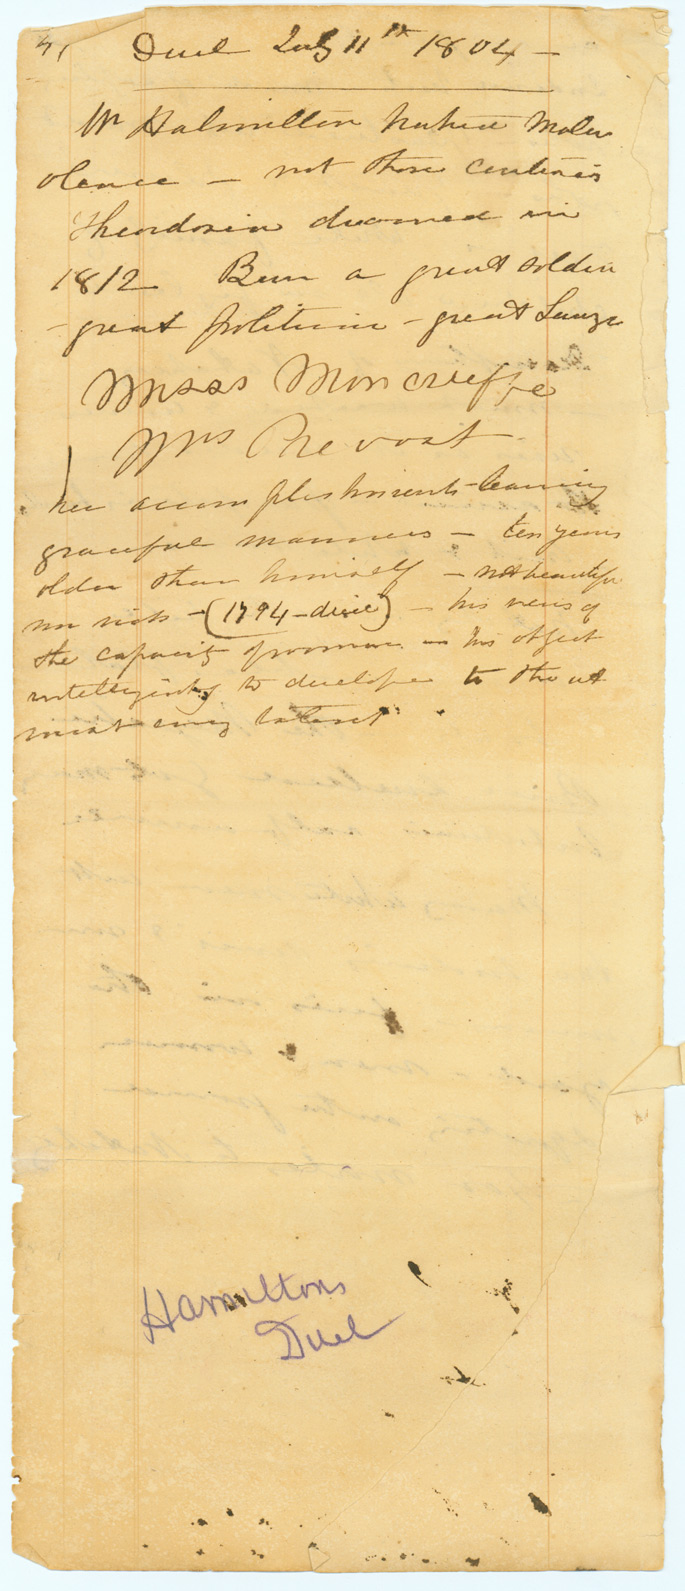 Duel July 11th 1804 —
Mr Halmilton hatred Malev
olence — not those centuries
Theodosia drowned in
1812 Burr a great soldier
- great politician - great Lawyer
Miss Moncrieffe
Mrs Prevost
her accomplishments - leaning
graceful manners — ten years
older than himself — not beautiful
nor rich — (1794 - died) — his views of
the capacity of woman — his object
intelligently to develope to the ut
most every talent
Hamiltons
Duel